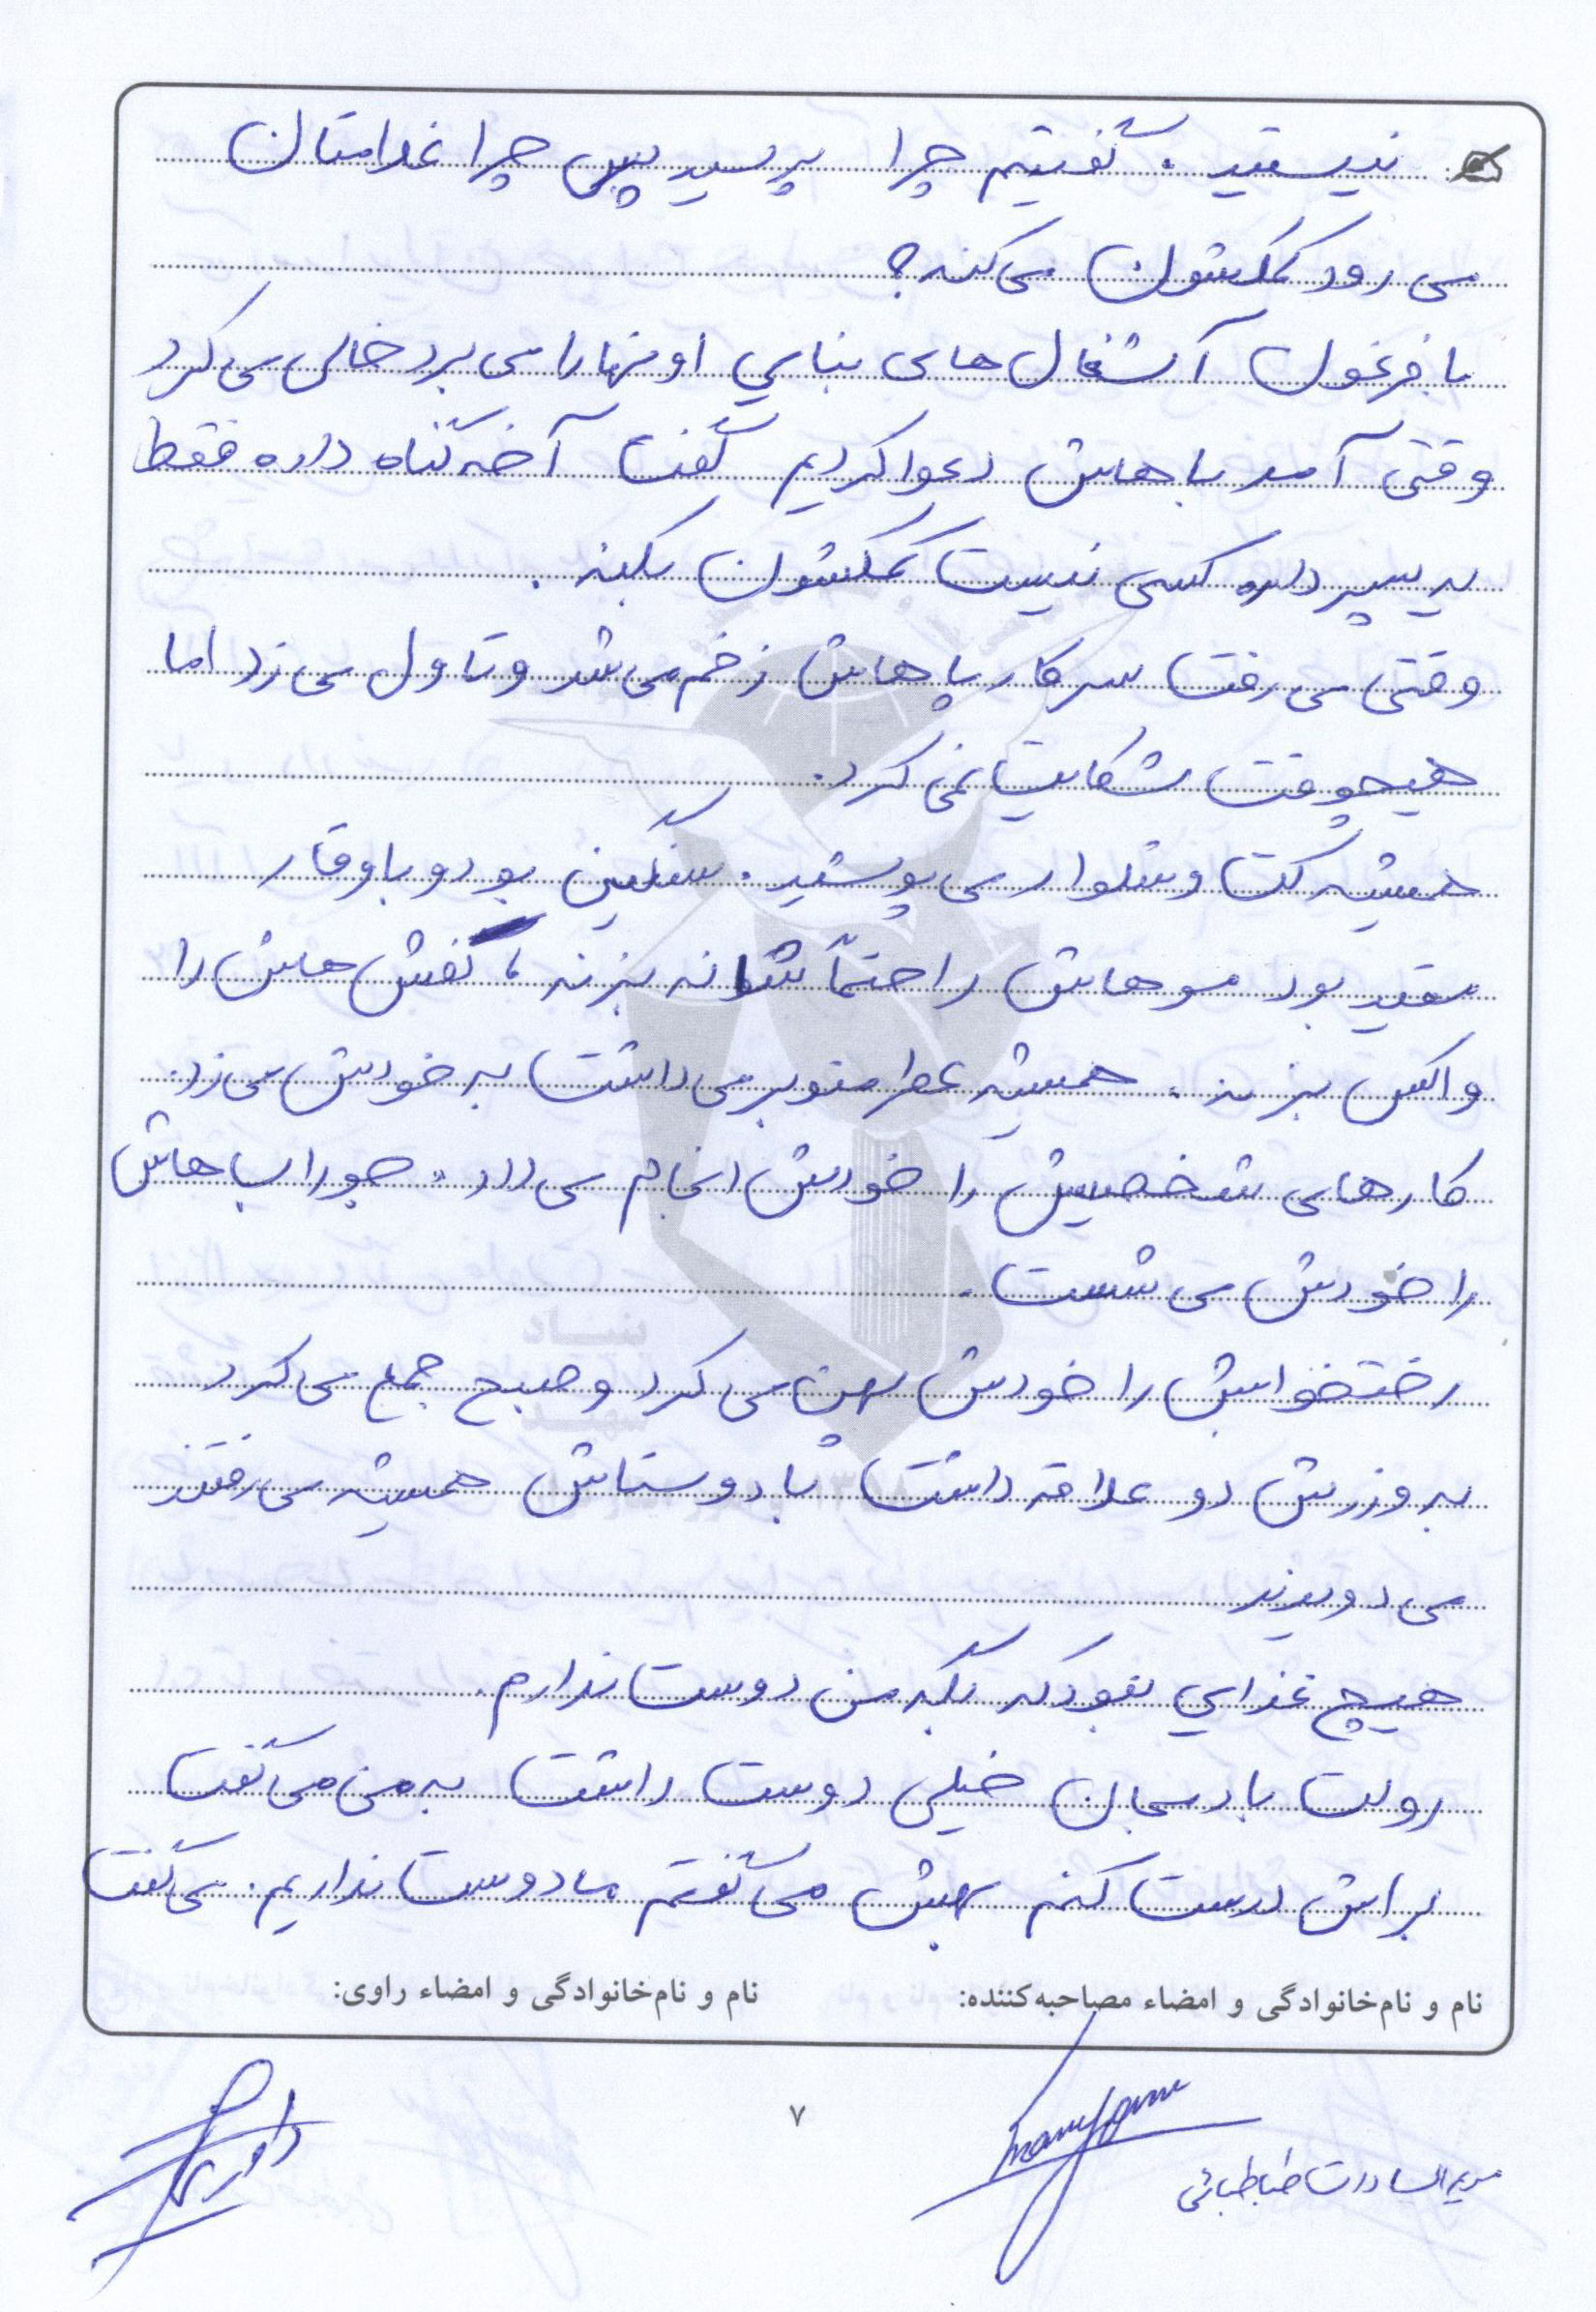 نیستید. گفتیم چرا پرسید پس چرا غلامتان
می رود کمکشون می کنه؟
با فرغول آشغال های بنایی اونها را می برد خالی می کرد
وقتی آمد باهاش دعوا کردیم گفت آخه گناه داره فقط
یه پسر داره کسی نیست کمکشون بکنه.
وقتی می رفت سرکار پاهاش زخم می شد و تاول می زد اما
هیچوقت شکایت نمی کرد.
همیشه کت و شلوار می پوشید. سنگین بود و باوقار
مقید بود موهایش را حتماً شانه بزنه، کفش هاش را
واکس بزنه. همیشه عطر منوبر می داشت به خودش می زد.
کارهای شخصیش را خودش انجام می داد. جوراب هاش
را خودش می شست.
رختخوابش را خودش پهن می کرد و صبح جمع می کرد
به ورزش دو علاقه داشت با دوستاش همیشه می رفتند
می دویدند
هیچ غذایی نبود که بگه من دوست ندارم.
رولت بادمجان خیلی دوست داشت به من می گفت
براش درست کنم بهش می گفتم ما دوست نداریم. می گفت
نام و نام‌خانوادگی و امضاء مصاحبه‌کننده:
نام و نام‌خانوادگی و امضاء راوی:
مریم السادات طباطبائی
۷
بنیاد
شهید